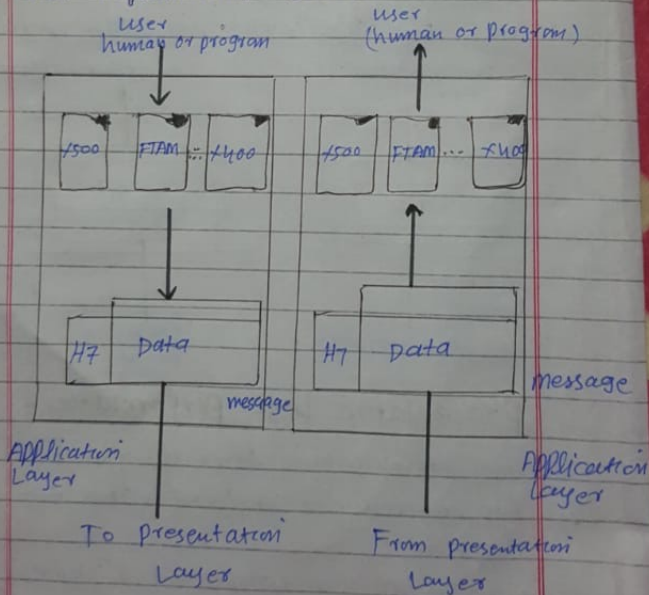 user
human or program
X500
FTAM
...
X400
H7
Data
message
Application
Layer
To presentation
Layer
user
(human or program)
X500
FTAM
...
X400
H7
Data
message
Application
Layer
From presentation
Layer